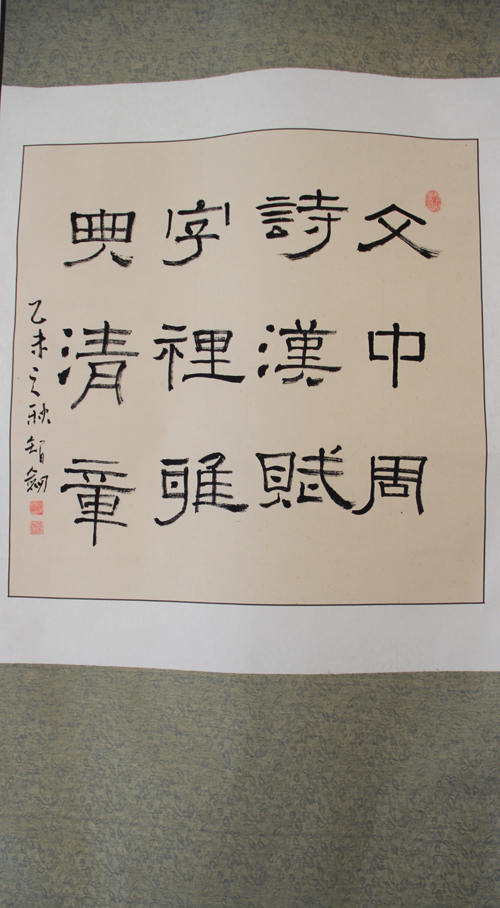 文中周
詩漢賦
字裡雅
典清章
乙未之秋智劍